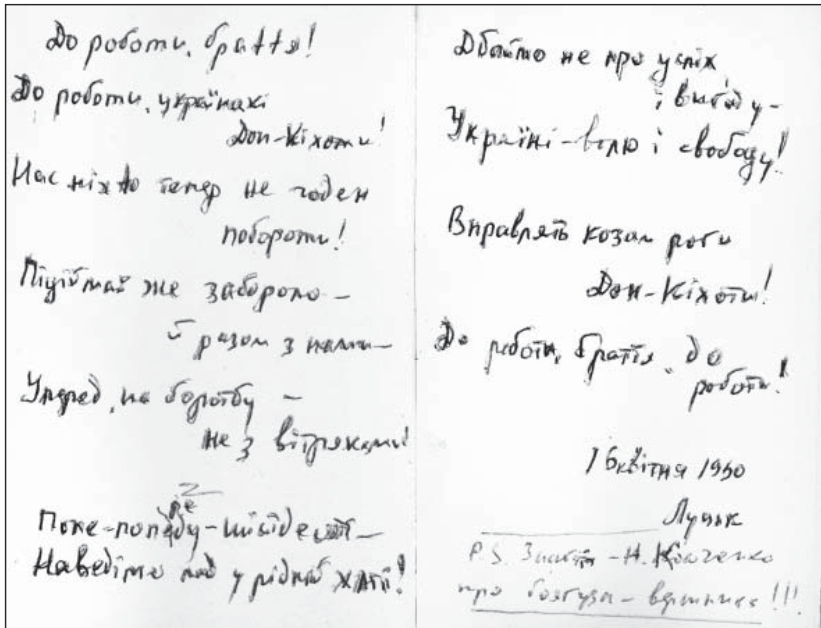 До роботи, браття!
До роботи, українські
Дон-Кіхоти!
Нас ніхто тепер не годен
побороти!
Підіймай же забороло –
й разом з нами –
Уперед, на боротьбу –
не з вітряками!
Наведімо лад у рідній хаті!
Дбаймо не про успіх
і вигоду –
Україні – волю і свободу!
Вправлять козам роги
Дон-Кіхоти!
До роботи, браття, до
роботи!
16 квітня 1990
Луцьк
P.S. Н.
про – !!!